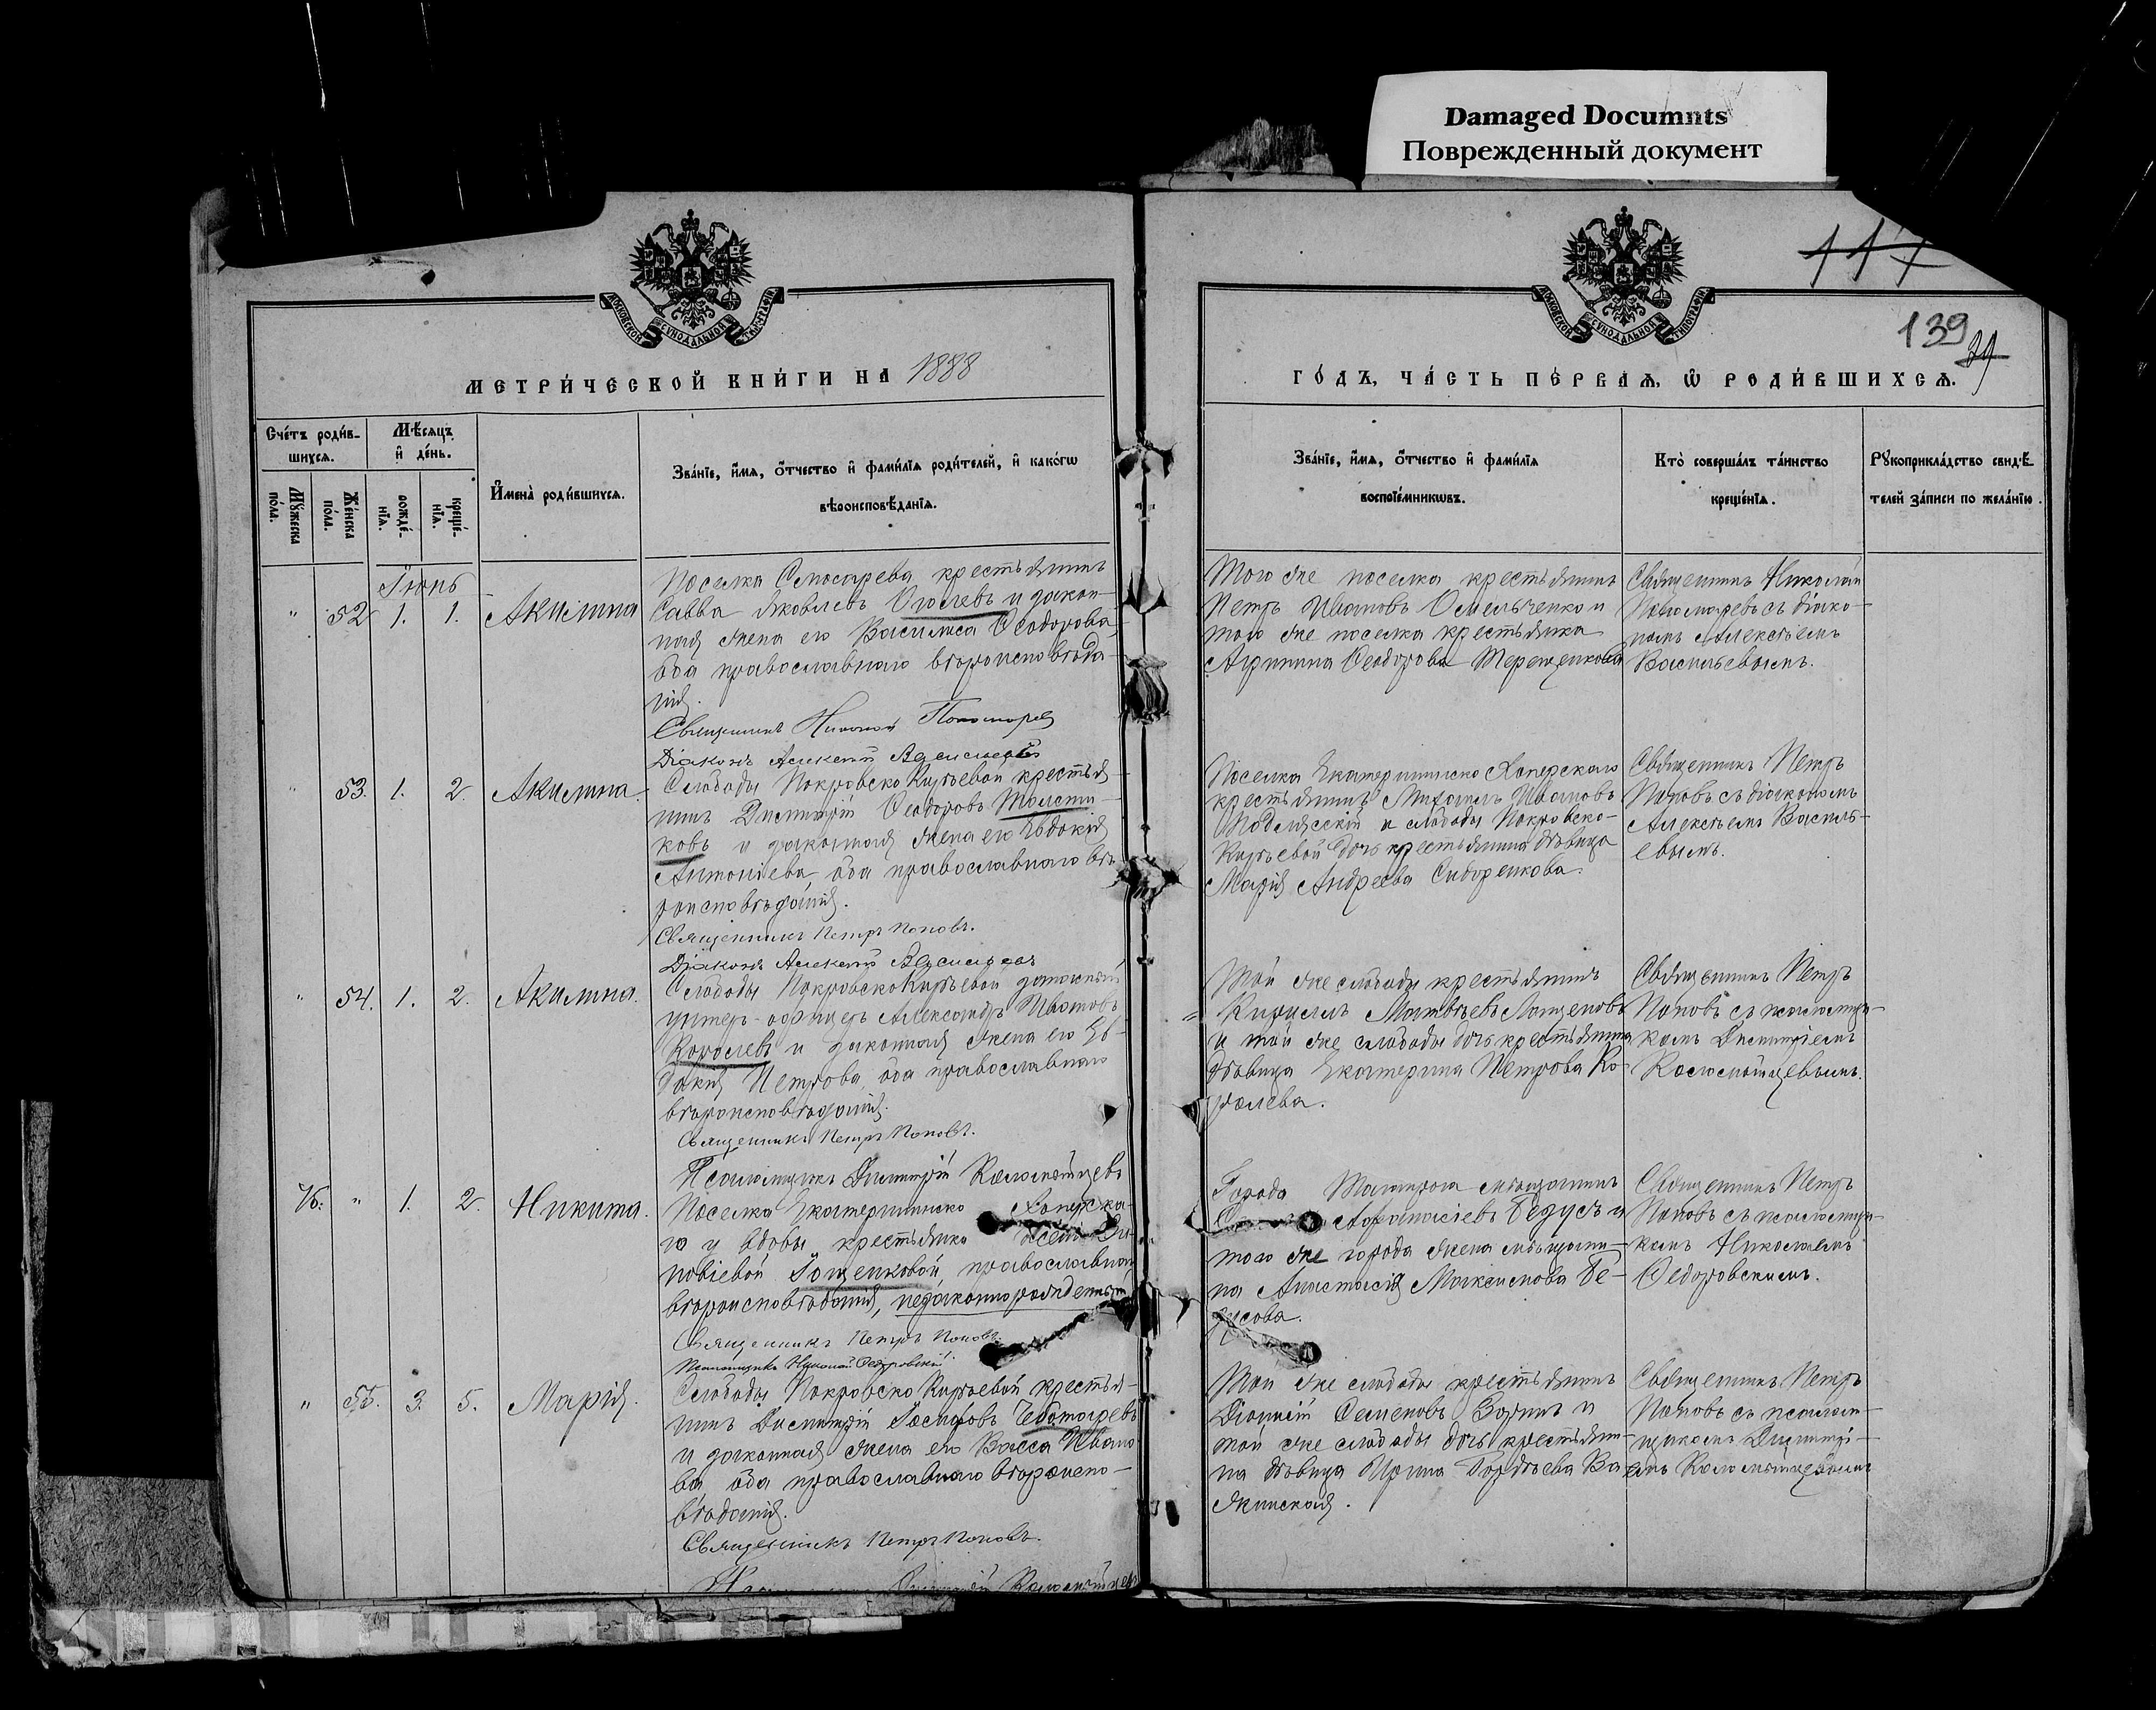 Damaged Documnts
Поврежденный документ
117
139
39
МОСКОВСКОЙ СѴНОДАЛЬНОЙ ТИПОГРАФІИ
МОСКОВСКОЙ СѴНОДАЛЬНОЙ ТИПОГРАФІИ
МЕТРИ́ЧЕСКОЙ КНИ́ГИ НА 1888
ГО́ДЪ, ЧА́СТЬ ПЕ́РВАѦ, Ѡ҆ РОДИ́ВШИХСѦ.
Сче́тъ роди́в-
шихсѧ.
Мѣ́сѧцъ
и҆ де́нь.
Мꙋ́жеска
по́ла.
Же́нска
по́ла.
рожде́-
нїѧ.
креще́-
нїѧ.
И҆мена̀ роди́вшихсѧ.
Зва́нїе, и҆́мѧ, ѻ҆́тчество и҆ фами́лїѧ роди́телей, и҆ како́гѡ
вѣроисповѣ́данїѧ.
Зва́нїе, и҆́мѧ, ѻ҆́тчество и҆ фами́лїѧ
воспрїе́мникѡвъ.
Кто̀ соверша́лъ та́инство
креще́нїѧ.
Рꙋкоприкла́дство свидѣ́-
телей за́писи по жела́нїю.
Іюнь
" 52 1. 1. Акилина
Поселка Слюсарева крестьянинъ
Савва Яковлевъ и закон-
ная жена его Василиса Ѳеодорова,
оба православнаго вѣроисповѣда-
нія.
Священникъ Николай Пономаревъ
Діаконъ Алексѣй Васильевъ
Того же поселка крестьянинъ
Петръ Ивановъ Омельченко и
того же поселка крестьянка
Агрипина Ѳеодорова Терещенкова
Священникъ Николай
Пономаревъ съ діако-
номъ Алексѣемъ
Васильевымъ.
" 53. 1. 2. Акилина.
Слободы Покровско Кирѣевой крестья-
нинъ Димитрій Ѳеодоровъ Толсти-
ковъ и законная жена его Евдокія
Антоніева, оба православнаго вѣ-
роисповѣданія.
Священникъ Петръ Поповъ.
Діаконъ Алексѣй Васильевъ
Поселка Екатериненско Хаперскаго
крестьянинъ Михаилъ Ивановъ
Подлѣсскій и слободы Покровско-
Кирѣевой дочь крестьянина дѣвица
Марія Андреева Сидоренкова.
Священникъ Петръ
Поповъ съ діакономъ
Алексѣемъ Василь-
евымъ.
" 54. 1. 2. Акилина.
Слободы Покровско Кирѣевой запасный
унтеръ-офицеръ Александръ Ивановъ
Королевъ и законная жена его Ев-
докія Петрова, оба православнаго
вѣроисповѣданія.
Священникъ Петръ Поповъ.
Псаломщикъ Димитрій Коломѣйцевъ
Той же слободы крестьянинъ
Кириллъ Матвѣевъ Лащеновъ
и той же слободы дочь крестьянина
дѣвица Екатерина Петрова Ко-
ролева.
Священникъ Петръ
Поповъ съ псаломщи-
комъ Димитріемъ
Коломѣйцевымъ.
76. " 1. 2. Никита.
Поселка Екатериненско Хаперска-
го у вдовы крестьянки
новіевой Гощенковой, православнаго
вѣроисповѣданія, незаконнорожденный
Священникъ Петръ Поповъ
Псаломщикъ Николай Ѳедоровскій
Города Таганрога мѣщанинъ
Аѳанасіевъ Безусъ и
того же города жена мѣщани-
на Анастасія Максимова Бе-
зусова.
Священникъ Петръ
Поповъ съ псаломщи-
комъ Николаемъ
Ѳедоровскимъ.
" 55. 3. 5. Марія.
Слободы Покровско Кирѣевой крестья-
нинъ Димитрій Іосифовъ Чеботаревъ
и законная жена его Васса Ивано-
ва, оба православнаго вѣроиспо-
вѣданія.
Священникъ Петръ Поповъ.
Димитрій Коломѣйцевъ
Той же слободы крестьянинъ
Діонисій Семеновъ Зоринъ и
той же слободы дочь крестьяни-
на дѣвица Ирина Гордѣева Ва-
жинская.
Священникъ Петръ
Поповъ съ псалом-
щикомъ Димитрі-
емъ Коломѣйцевымъ